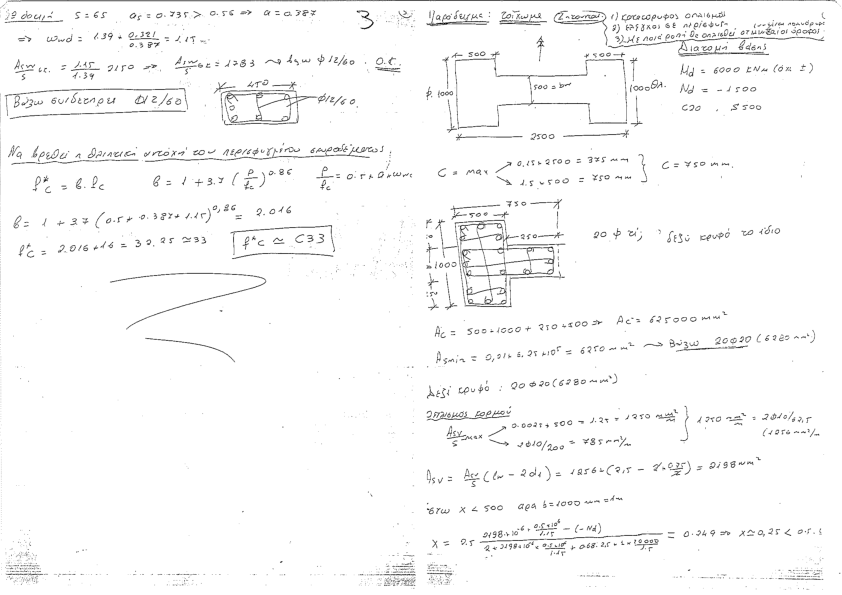 1η δοκιμή S=65 as = 0.735 > 0.56 ⇒ a = 0.387
3
⇒ ωwd = 1.39 + 0.321/0.387 = 1.15
Asw/S = 1.15/1.39 2150 ⇒ Asw/S = 1283 Φ12/60. O.K.
Βάζω συνδετήρα Φ12/60
450
Φ12/60
Να βρεθεί η θλιπτική αντοχή του περισφιγμένου σκυροδέματος.
f*c = β.fc β = 1 + 3.7 (P/fc)^0.86 P/fc = 0.5 * a * ωwd
β = 1 + 3.7 (0.5 * 0.387 * 1.15)^0.86 = 2.016
f*c = 2.016 * 16 = 32.25 ≃ 33 f*c ≃ C33
Παράδειγμα: τοίχωμα Ζητούνται 1) κατακόρυφος οπλισμός
2) έλεγχος σε περίσφιγξη
Διατομή βάσης
500
500
Φ. 1000
500 = bw
1000 θλ.
2500
Md = 6000 KNm (όχι ±)
Nd = -1500
C20, S500
C = max 0.15*2500 = 375 mm
1.5*500 = 750 mm
C = 750 mm.
750
500
250
1000
20 Φ τί; δεξύ κρυφό το ίδιο
Ac = 500*1000 + 250*500 ⇒ Ac = 625000 mm²
Asmin = 0,01 * 6.25*10⁵ = 6250 mm² → Βάζω 20Φ20 (6280 mm²)
Δεξί κρυφό: 20Φ20 (6280 mm²)
Οπλισμός κορμού
Asv/S max 0.0025*500 = 1.25 = 1250 mm²/m
2Φ10/200 = 785 mm²/m
1250 mm²/m = 2Φ10/12,5
(1256 mm²/m
Asv = Asv/S (lw - 2d1) = 1256 * (2,5 - 2*0.75/2) = 2198 mm²
έστω x < 500 άρα b = 1000 mm = 1m
x = 2.5 (2198*10⁻⁶ * 0.5*10⁶/1.15 - (-Nd)) / (2*2198*10⁻⁶ * 0.5*10⁶/1.15 + 0.68*2.5*1*20000/1.5) = 0.249 ⇒ x ≃ 0,25 < 0.5